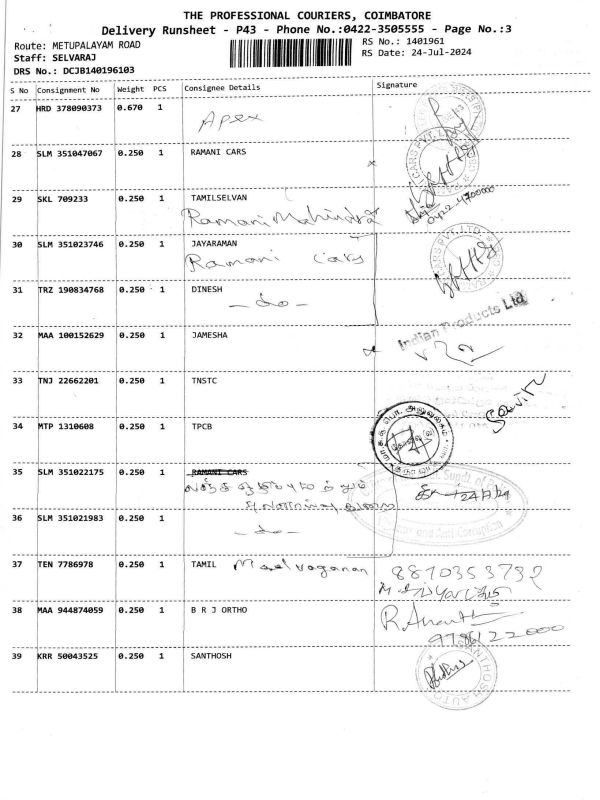 THE PROFESSIONAL COURIERS, COIMBATORE
Delivery Runsheet - P43 - Phone No.:0422-3505555 - Page No.:3
Route: METUPALAYAM ROAD
RS No.: 1401961
Staff: SELVARAJ
RS Date: 24-Jul-2024
DRS No.: DCJB140196103
S No Consignment No Weight PCS Consignee Details Signature
27 HRD 378090373 0.670 1
Apex
28 SLM 351047067 0.250 1 RAMANI CARS
29 SKL 709233 0.250 1 TAMILSELVAN
Ramani Mahindra
0422-4700000
30 SLM 351023746 0.250 1 JAYARAMAN
Ramani Cars
31 TRZ 190834768 0.250 1 DINESH
- do -
Indian Products Ltd
32 MAA 100152629 0.250 1 JAMESHA
33 TNJ 22662201 0.250 1 TNSTC
34 MTP 1310608 0.250 1 TPCB
35 SLM 351022175 0.250 1 RAMANI CARS
24/7/24
36 SLM 351021983 0.250 1
- do -
and Anti-Corruption
37 TEN 7786978 0.250 1 TAMIL
8870353732
38 MAA 944874059 0.250 1 B R J ORTHO
39 KRR 50043525 0.250 1 SANTHOSH
SANTHOSH AUTO